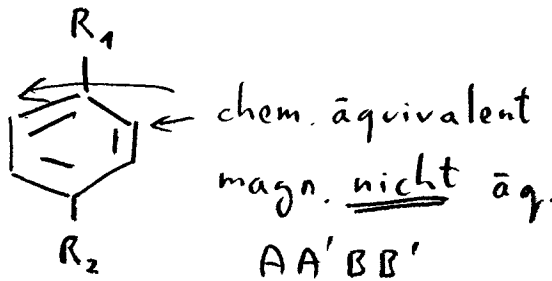 R1
chem. äquivalent
magn. nicht äq.
R2
AA'BB'